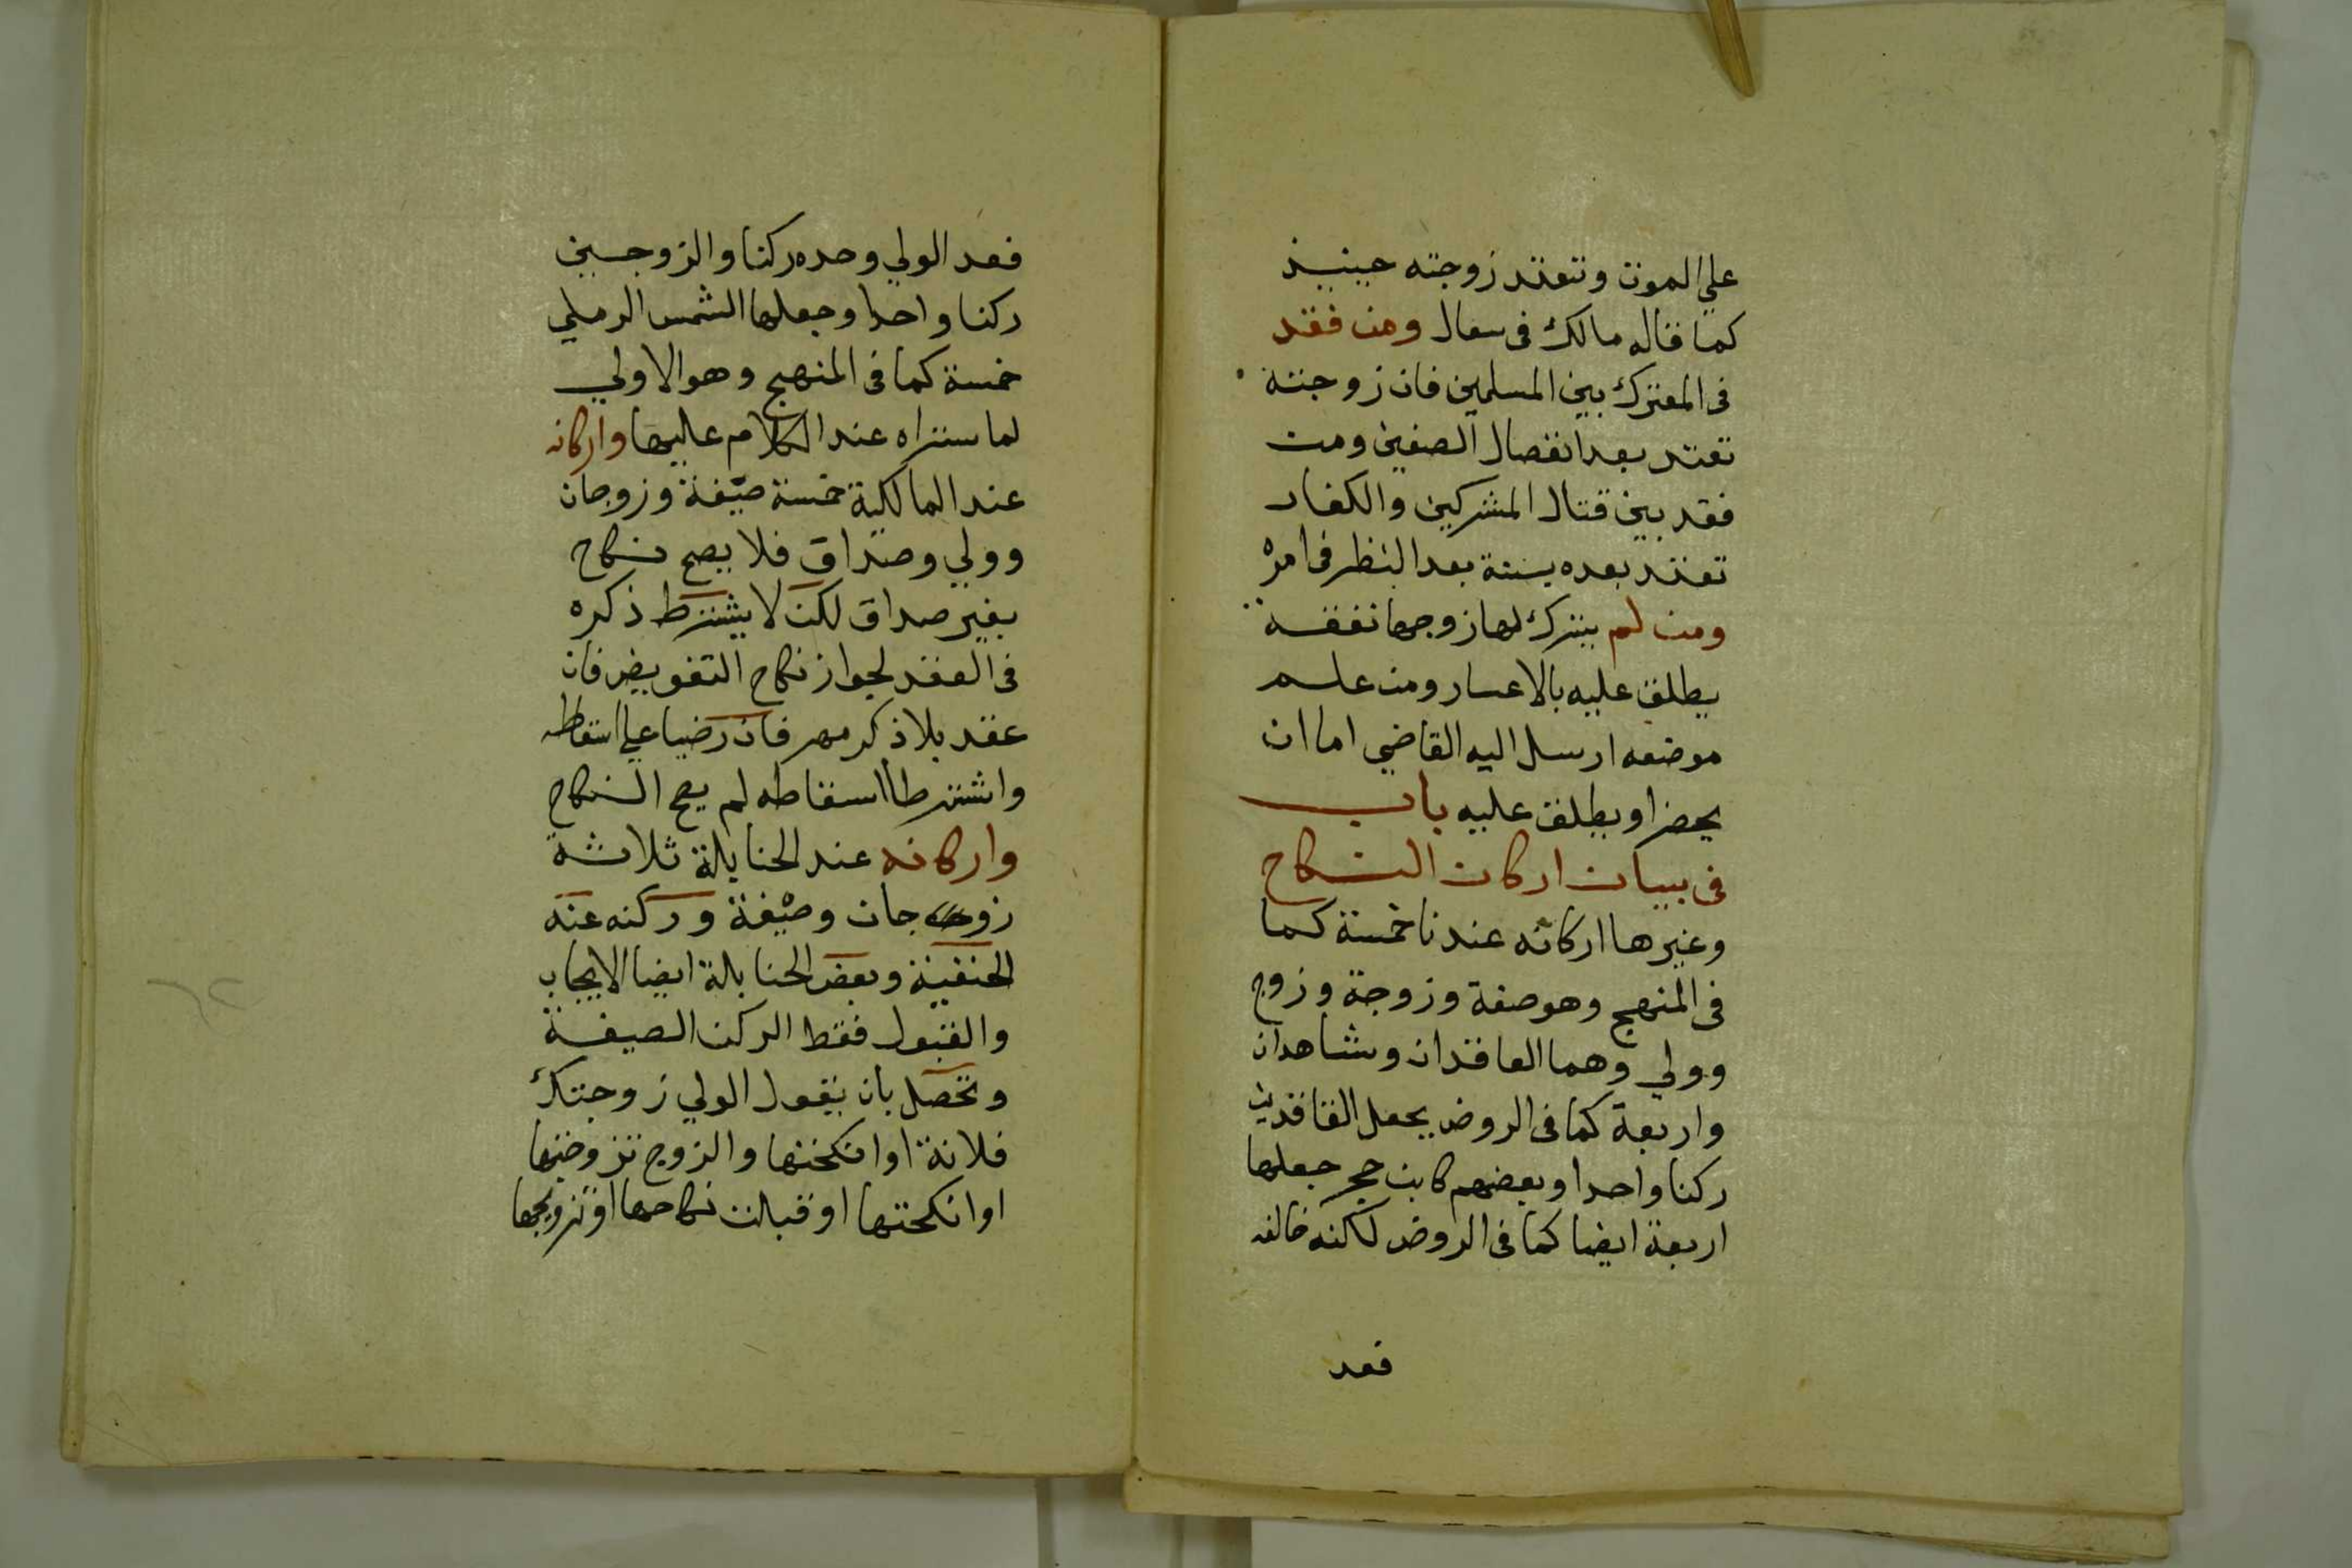 علي الموت وتعتد زوجته حينيذ
كما قاله مالك فى سعال ومن فقد
فى المعترك بين المسلمين فان زوجته
تعتد بعد انفصال الصفين ومن
فقد بين قتال المشركين والكفار
تعتد بعده بسنة بعد النظر فى امره
ومن لم يترك لها زوجها نفقة
يطلق عليه بالاعسار ومن علم
موضعه ارسل اليه القاضي اما ان
يحضر او يطلق عليه باب
فى بيان اركان النكاح
وغيرها اركانه عندنا خمسة كما
فى المنهج وهو صغة وزوجة وزوج
وولي وهما العاقدان وشاهدان
واربعة كما فى الروض يجعل العاقدين
ركنا واحدا وبعضهم كابن حجر جعلها
اربعة ايضا كما فى الروض لكنه خالفه
فعد
فعد الولي وحده ركنا والزوجين
ركنا واحدا وجعلها الشمس الرملي
خمسة كما فى المنهج وهو الاولي
لما ستراه عند الكلام عليها واركانه
عند المالكية خمسة صيغة وزوجان
وولي وصداق فلا يصح نكاح
بغير صداق لكن لا يشترط ذكره
فى العقد لجواز نكاح التفويض فان
عقد بلا ذكر مهر فان رضيا علي اسقاطه
واشترطا اسقاطه لم يصح النكاح
واركانه عند الحنابلة ثلاثة
زوجان وصيغة وركنه عنه
الحنفية وبعض الحنابلة ايضا الايجاب
والقبول فقط الركن الصيغة
وتحصل بان يقول الولي زوجتك
فلانة او انكحتها والزوج تزوجتها
او انكحتها او قبلت نكاحها او تزويجها